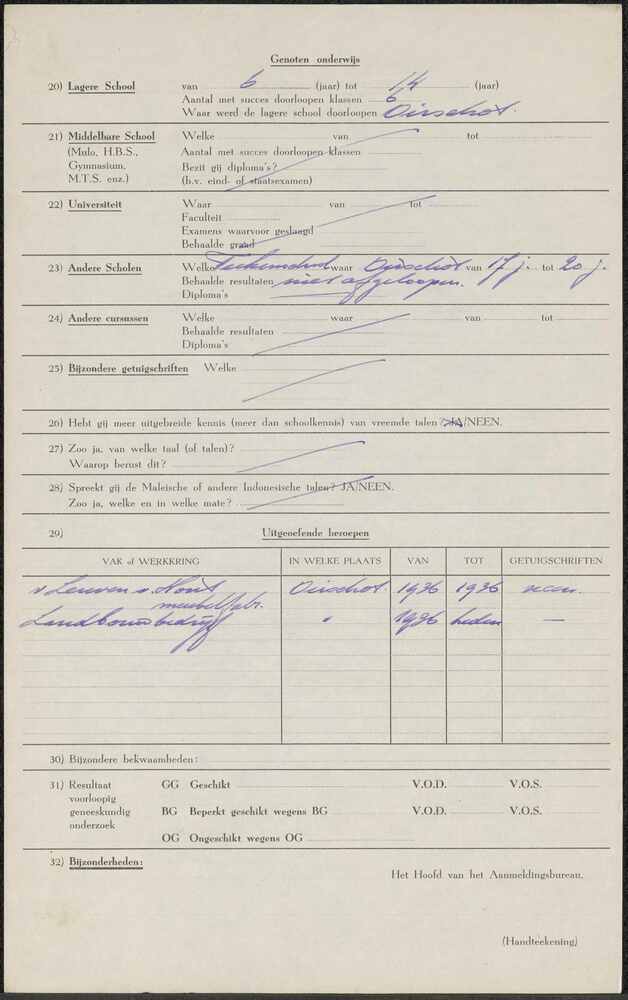 Genoten onderwijs
20) Lagere School van 6 (jaar) tot 14 (jaar)
Aantal met succes doorloopen klassen 6
Waar werd de lagere school doorloopen Oirschot.
21) Middelbare School Welke van tot
(Mulo, H.B.S., Aantal met succes doorloopen klassen
Gymnasium, Bezit gij diploma's?
M.T.S. enz.) (b.v. eind- of staatsexamen)
22) Universiteit Waar van tot
Faculteit
Examens waarvoor geslaagd
Behaalde graad
23) Andere Scholen Welke Teekenschool waar Oirschot van 17 j. tot 20 j.
Behaalde resultaten niet afgeloopen.
Diploma's
24) Andere cursussen Welke waar van tot
Behaalde resultaten
Diploma's
25) Bijzondere getuigschriften Welke
26) Hebt gij meer uitgebreide kennis (meer dan schoolkennis) van vreemde talen? JA/NEEN.
27) Zoo ja, van welke taal (of talen)?
Waarop berust dit?
28) Spreekt gij de Maleische of andere Indonesische talen? JA/NEEN.
Zoo ja, welke en in welke mate?
29) Uitgeoefende beroepen
VAK of WERKKRING IN WELKE PLAATS VAN TOT GETUIGSCHRIFTEN
v Leuven v. Hout Oirschot. 1936 1936 neen.
meubelfabr.
Landbouwbedrijf " 1936 heden —
30) Bijzondere bekwaamheden:
31) Resultaat GG Geschikt V.O.D. V.O.S.
voorloopig
geneeskundig BG Beperkt geschikt wegens BG V.O.D. V.O.S.
onderzoek
OG Ongeschikt wegens OG
32) Bijzonderheden:
Het Hoofd van het Aanmeldingsbureau,
(Handteekening)